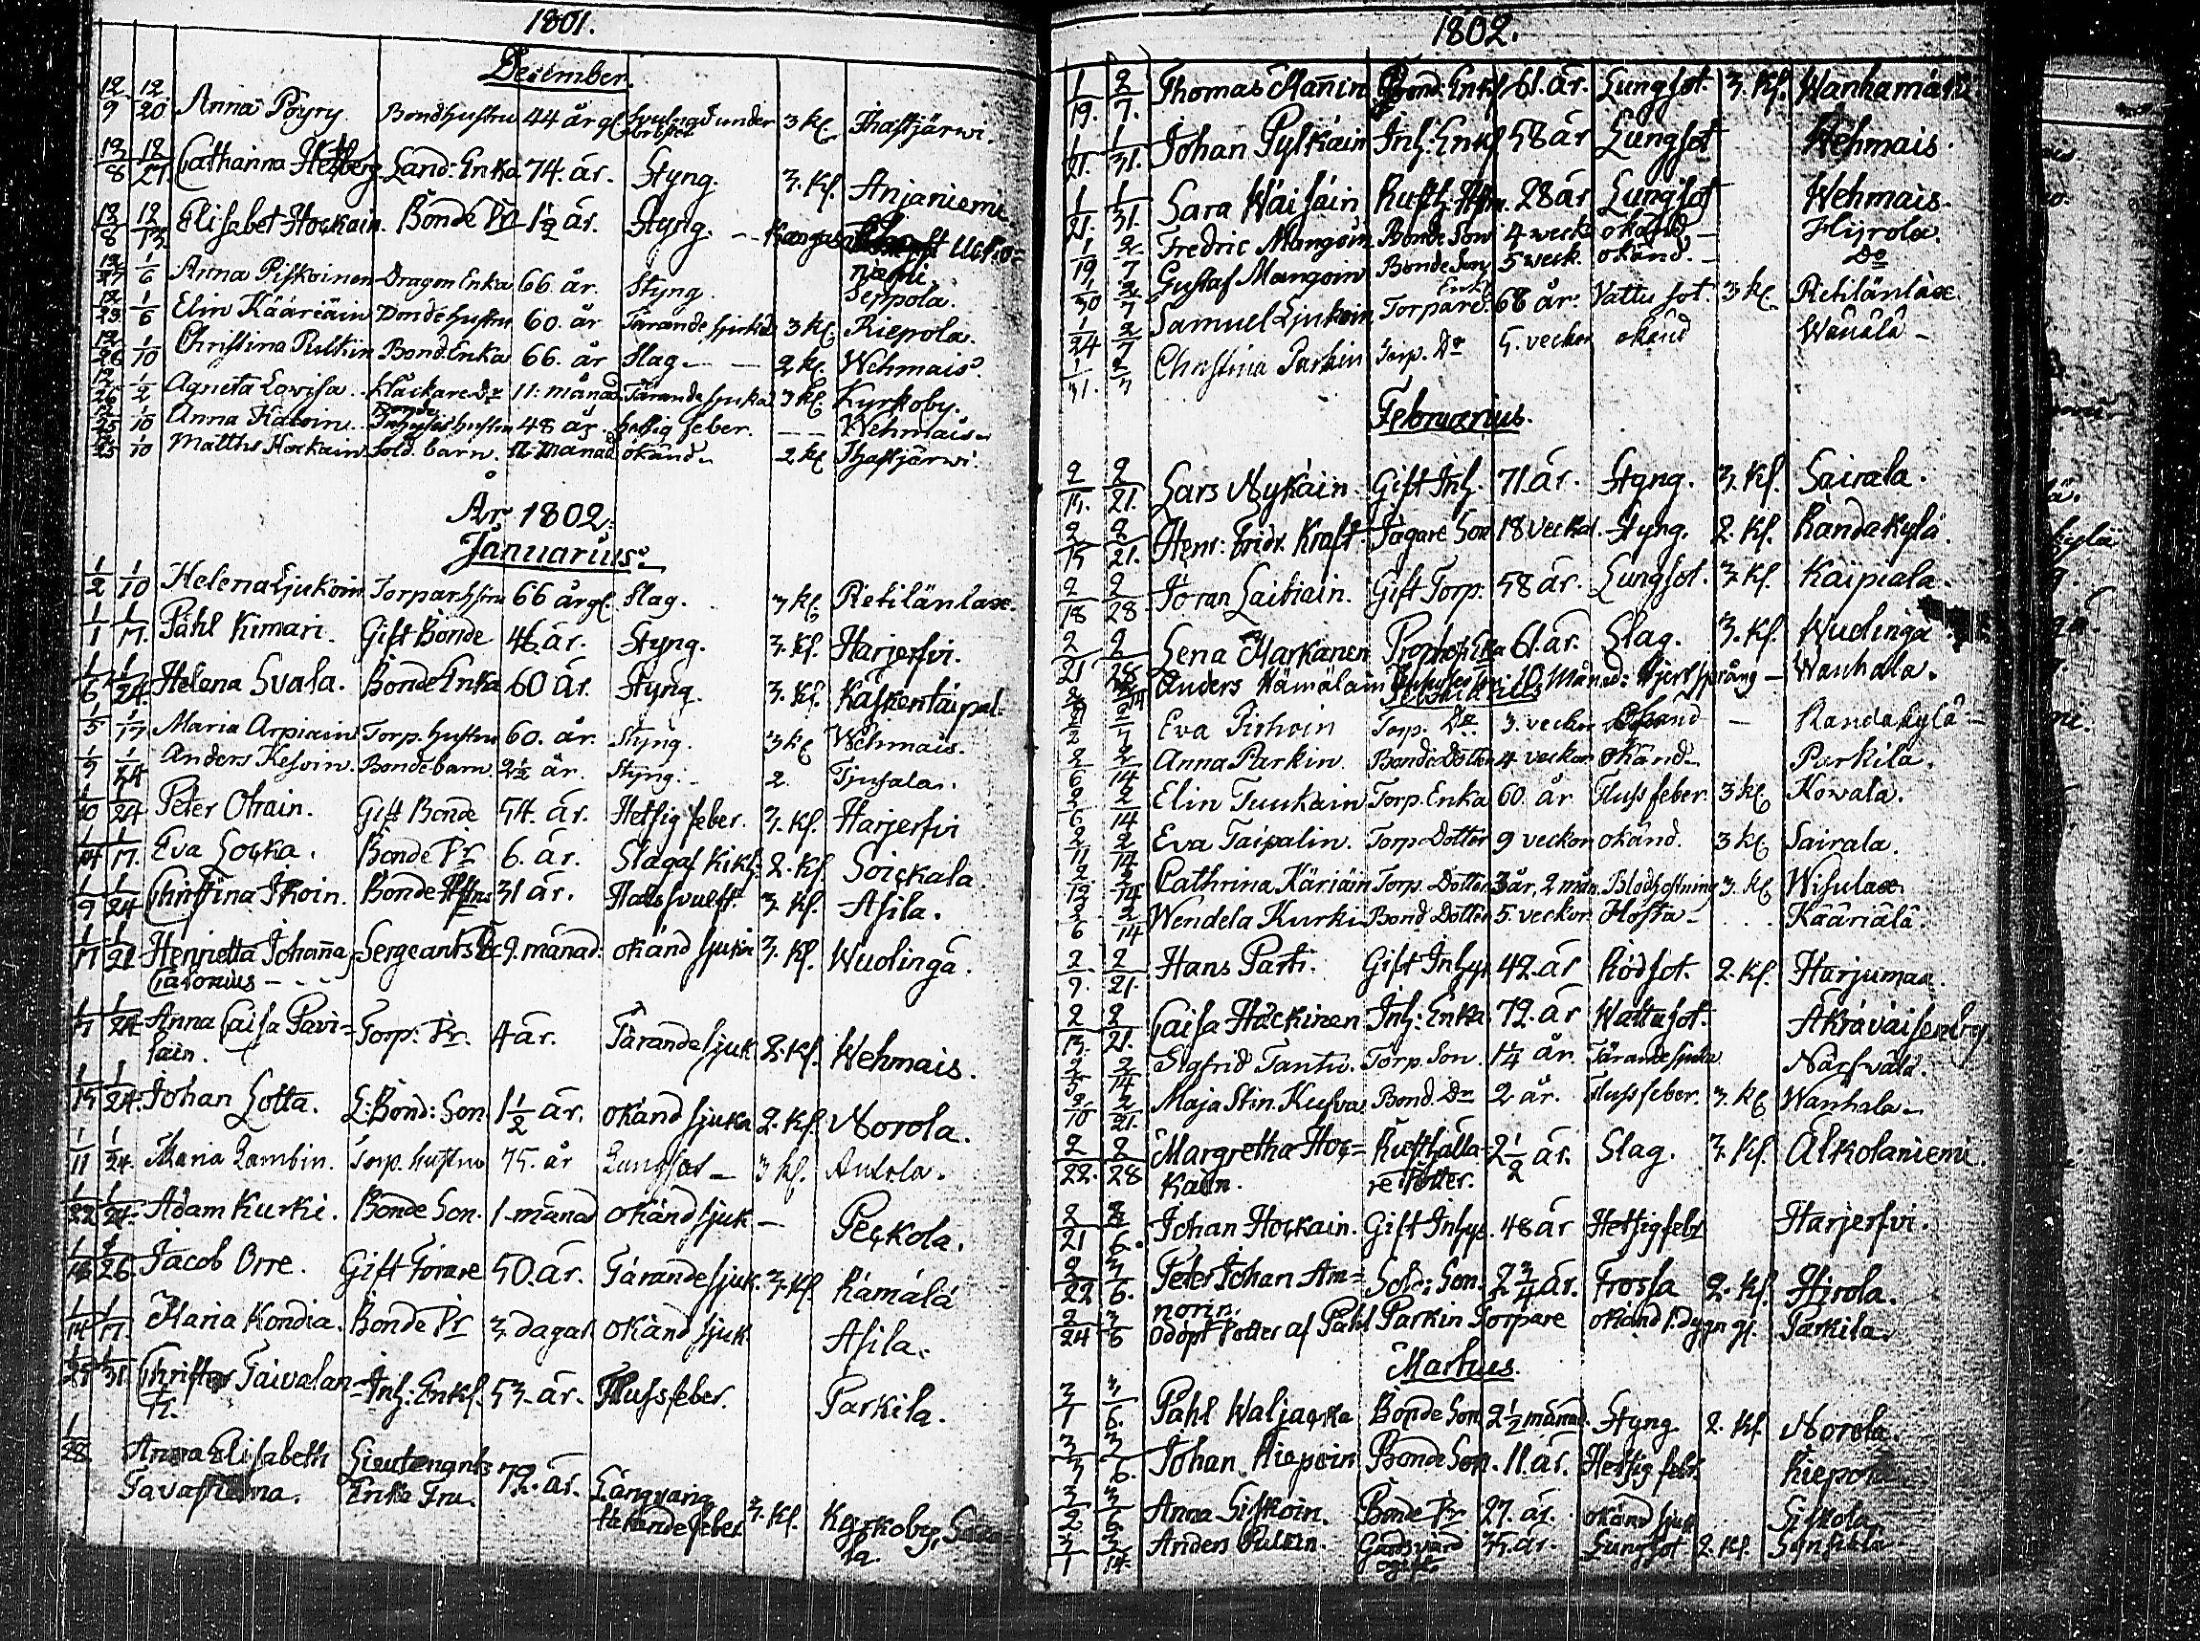 1801.
December.
12/9 12/20 Anna Pöyry. Bondhustru 44 år gl. 3 Kl. Thastjärwi.
12/8 12/27 Catharina Land: Enka 74. år. Styng. 3. Kl. Anjaniemi
12/8 12/13 Elisabet Hockain. Bonde Dr 1 1/2 år. Styng. --
niemi
12/27 1/6 Anna Piskoinen Dragon Enka 66 år. Styng. Seppola.
12/29 1/6 Elin Kääriäin Bonde hustru 60. år Tärande siukd. 3 Kl. Riepola.
12/26 1/10 Christina Pulkin Bond. Enka 66. år Slag - - 2 Kl. Wehmais.
12/26 1/2 Agneta Lovisa. Klåckare Dr 11. månad Tärande sjuka 3 Kl. Kyrkoby.
Bonde
12/25 1/10 Anna Hatoin. Inhyses hustru 48 år. hettig feber. -- Wehmais.
12/25 1/10 Matths Hockain Sold. barn. 11. månad okänd. 2 Kl. Thastjärwi.
År 1802.
Januarius.
1/2 1/10 Helena Ljukoin Torpar hstru 66 år gl. Slag. 3 Kl. Retilänlax.
1/1 1/17. Påhl Kimari. Gift Bonde 46. år. Styng. 3. Kl. Harjersvi.
1/6 1/24. Helena Svala. Bonde Enka 60 år. Styng. 3. Kl. Kaskentaipal.
1/5 1/17 Maria Arpiain Torp. hustru 60. år. Styng. 3 Kl. Wehmais.
1/9 1/24 Anders Kesoin. Bonde barn 2 1/2 år. Styng. - 2. Tjusala.
1/10 1/24 Peter Otrain. Gift Bonde 54. år. Hetsig feber. 3. Kl. Harjersvi
1/04 1/17. Eva Locka. Bonde Dr 6. år. Slag af Kikh. 2. Kl. Soickala
1/9 1/24 Christina Ikoin. Bonde Hstru 31 år. Halssvulst. 3. Kl. Asila.
1/17 1/21 Henrietta Johanna Sergeants Dr 9. månad: okänd sjuka 3. Kl. Wuolinga.
Calonius - - -
1/7 1/24 Anna Caisa Pavi= Torp: Dr. 4 år. Tärande sjuk. 2. Kl. Wehmais.
lain.
1/15 1/24. Johan Lotta. L: Bond: Son. 1 1/2 år. okänd sjuka 2. Kl. Norola.
1/11 1/24. Maria Lambin. Torp. hustru 75. år Lungsot - 3 Kl. Antola.
1/22 1/24. Adam Kurki. Bonde Son. 1. månad okänd sjuk - Peckola.
1/18 1/26. Jacob Orre. Gift Förare 50. år. Tärande sjuk. 3. Kl. Kämälä
1/14 1/17. Maria Kondia. Bonde Dr 3. dagar okänd sjuk Asila.
1/25 1/31. Christer Taivalan- Inh: Enkl. 53. år. Flussfeber. Parkila.
1/28 Anna Elisabeth Lieutenants 72. år. Långvarig 3. Kl. Kyrkoby, Sava
Tavastierna. Enka Fru. tärande feber la.
1802.
1/19. 2/7. Thomas Mannin Bond: Enkl. 61. år. Lungsot. 3. Kl. Wanhamäki
1/21. 1/31. Johan Pylkäin Inh: Enkl. 58 år Lungsot Wehmais.
1/21. 1/31. Sara Wäisäin Rusth: Hstru. 28 år Lungsot Wehmais.
1/19 2/7 Fredric Mangoin Bonde Son 4 weck okänd - Hijrola.
1/30 2/7 Gustaf Mangoin Bonde Son 5 weck. okänd. - Do
Enkl.
1/24 2/7 Samuel Ljukoin Torpare 68 år: Vattu sot. 3 Kl. Retilänlax
1/31. 2/7 Christina Parkin Torp. Dr 5. veckor okänd Wänälä -
Februarius.
2/15. 2/21. Lars Nykäin Gift Inh. 71. år. Styng. 3. Kl. Sairala.
2/15 2/21. Henr: Fridr. Kraft Jägare Son 18 veckor. Styng. 2. Kl. Randakylä
2/18 2/28. Jöran Laitiain. Gift Torp. 58 år. Lungsot. 3. Kl. Kaipiala.
2/21 2/28 Lena Markanen Enka 61. år. Slag. 3. Kl. Wuolinga
Anders Hämäläin 10. Månad: Hjertsprång - Wanhala.
2/2 2/7 Eva Pirhoin Torp. Dr. 3. veckor okänd - Randakylä -
2/6 2/14 Anna Parkin. Bonde Dotter 4 veckor okänd - Parkila.
2/6 2/14 Elin Tuukain Torp. Enka 60. år Fluss feber. 3 Kl. Kowala.
2/11 2/14 Eva Taipalin. Torp. Dotter 9 veckor okänd. 3 Kl. Sairala.
2/12 2/14 Cathrina Käriäin Torp. Dotter 3 år, 2 mån. Blodhostning 3. Kl. Wisulax.
2/6 2/14 Wendela Kurki Bond. Dotter 5. veckor. Hosta - Kääriälä.
2/9. 2/21. Hans Parti. Gift Inhys 42. år Rödsot. 2. Kl. Harjumaa.
2/13. 2/21. Caisa Häckinen Inh: Enka. 72. år Wattusot.
2/5 2/14 Sigfrid Tanttu. Torp. Son. 1 1/4 år. Tärande sjuka Närfvälä.
2/10 2/21. Maja Stin. Kusva Bond. Dr 2 år. Fluss feber. 3. Kl. Wanhala -
2/22. 2/28 Margretha Hoc= Rusthålla- 2 1/2 år. Slag. 3. Kl. Alkolaniemi.
kain. re Dotter.
2/21 3/6. Johan Hockain. Gift Inhys. 48 år Hetsig febr Harjersvi.
2/22 3/6. Peter Johan Am= Sold: Son. 2 3/4 år. Frossa 2. Kl. Hirola.
norin.
2/24 3/6 Odöpt Dotter af Påhl Parkin Torpare okänd 1. dygn gl. Parkila.
Martius.
3/1 3/6. Påhl Waljacka Bonde Son 2 1/2 månad. Styng 2. Kl. Norola.
3/3 3/6. Johan Riepoin Bonde Son. 11. år. Hetsig febr.
3/2. 3/6. Anna Siskoin. Bonde Dr 27. år. okänd sjuk Siskola.
3/1 3/14. Anders Pulkin. Gårdsvärd 35. år. Lungsot 2. Kl.
ogift